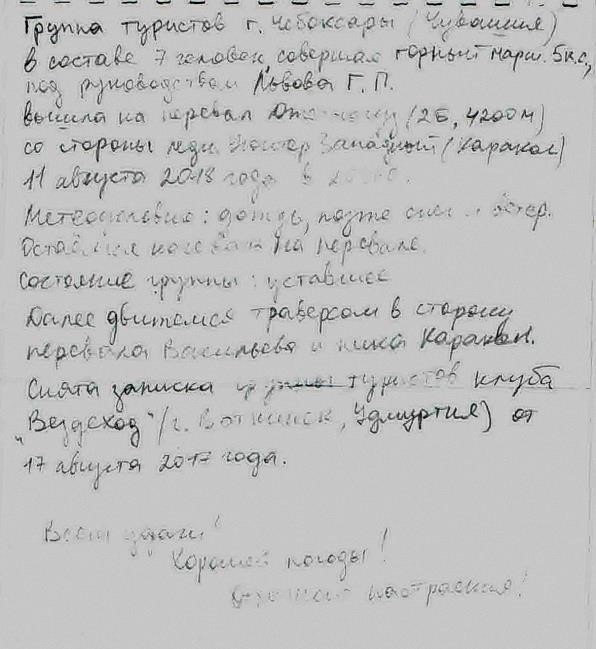 Группа туристов г. Чебоксары (Чувашия)
в составе 7 человек, совершая горный марш. 5 к.с.,
под руководством Львова Г. П.
вышла на перевал (2Б, 4200м)
со стороны ледн. Западный (Каракол)
11 августа 2018 года в
Метеоусловия: дождь, позже снег и ветер.
Остаёмся ночевать на перевале.
Состояние группы: уставшее
Далее движемся траверсом в сторону
перевала Васильева и пика Каракол.
Снята записка группы туристов клуба
"Вездеход" (г. Воткинск, Удмуртия) от
17 августа 2017 года.
Всем удачи!
Хорошей погоды!
настроения!